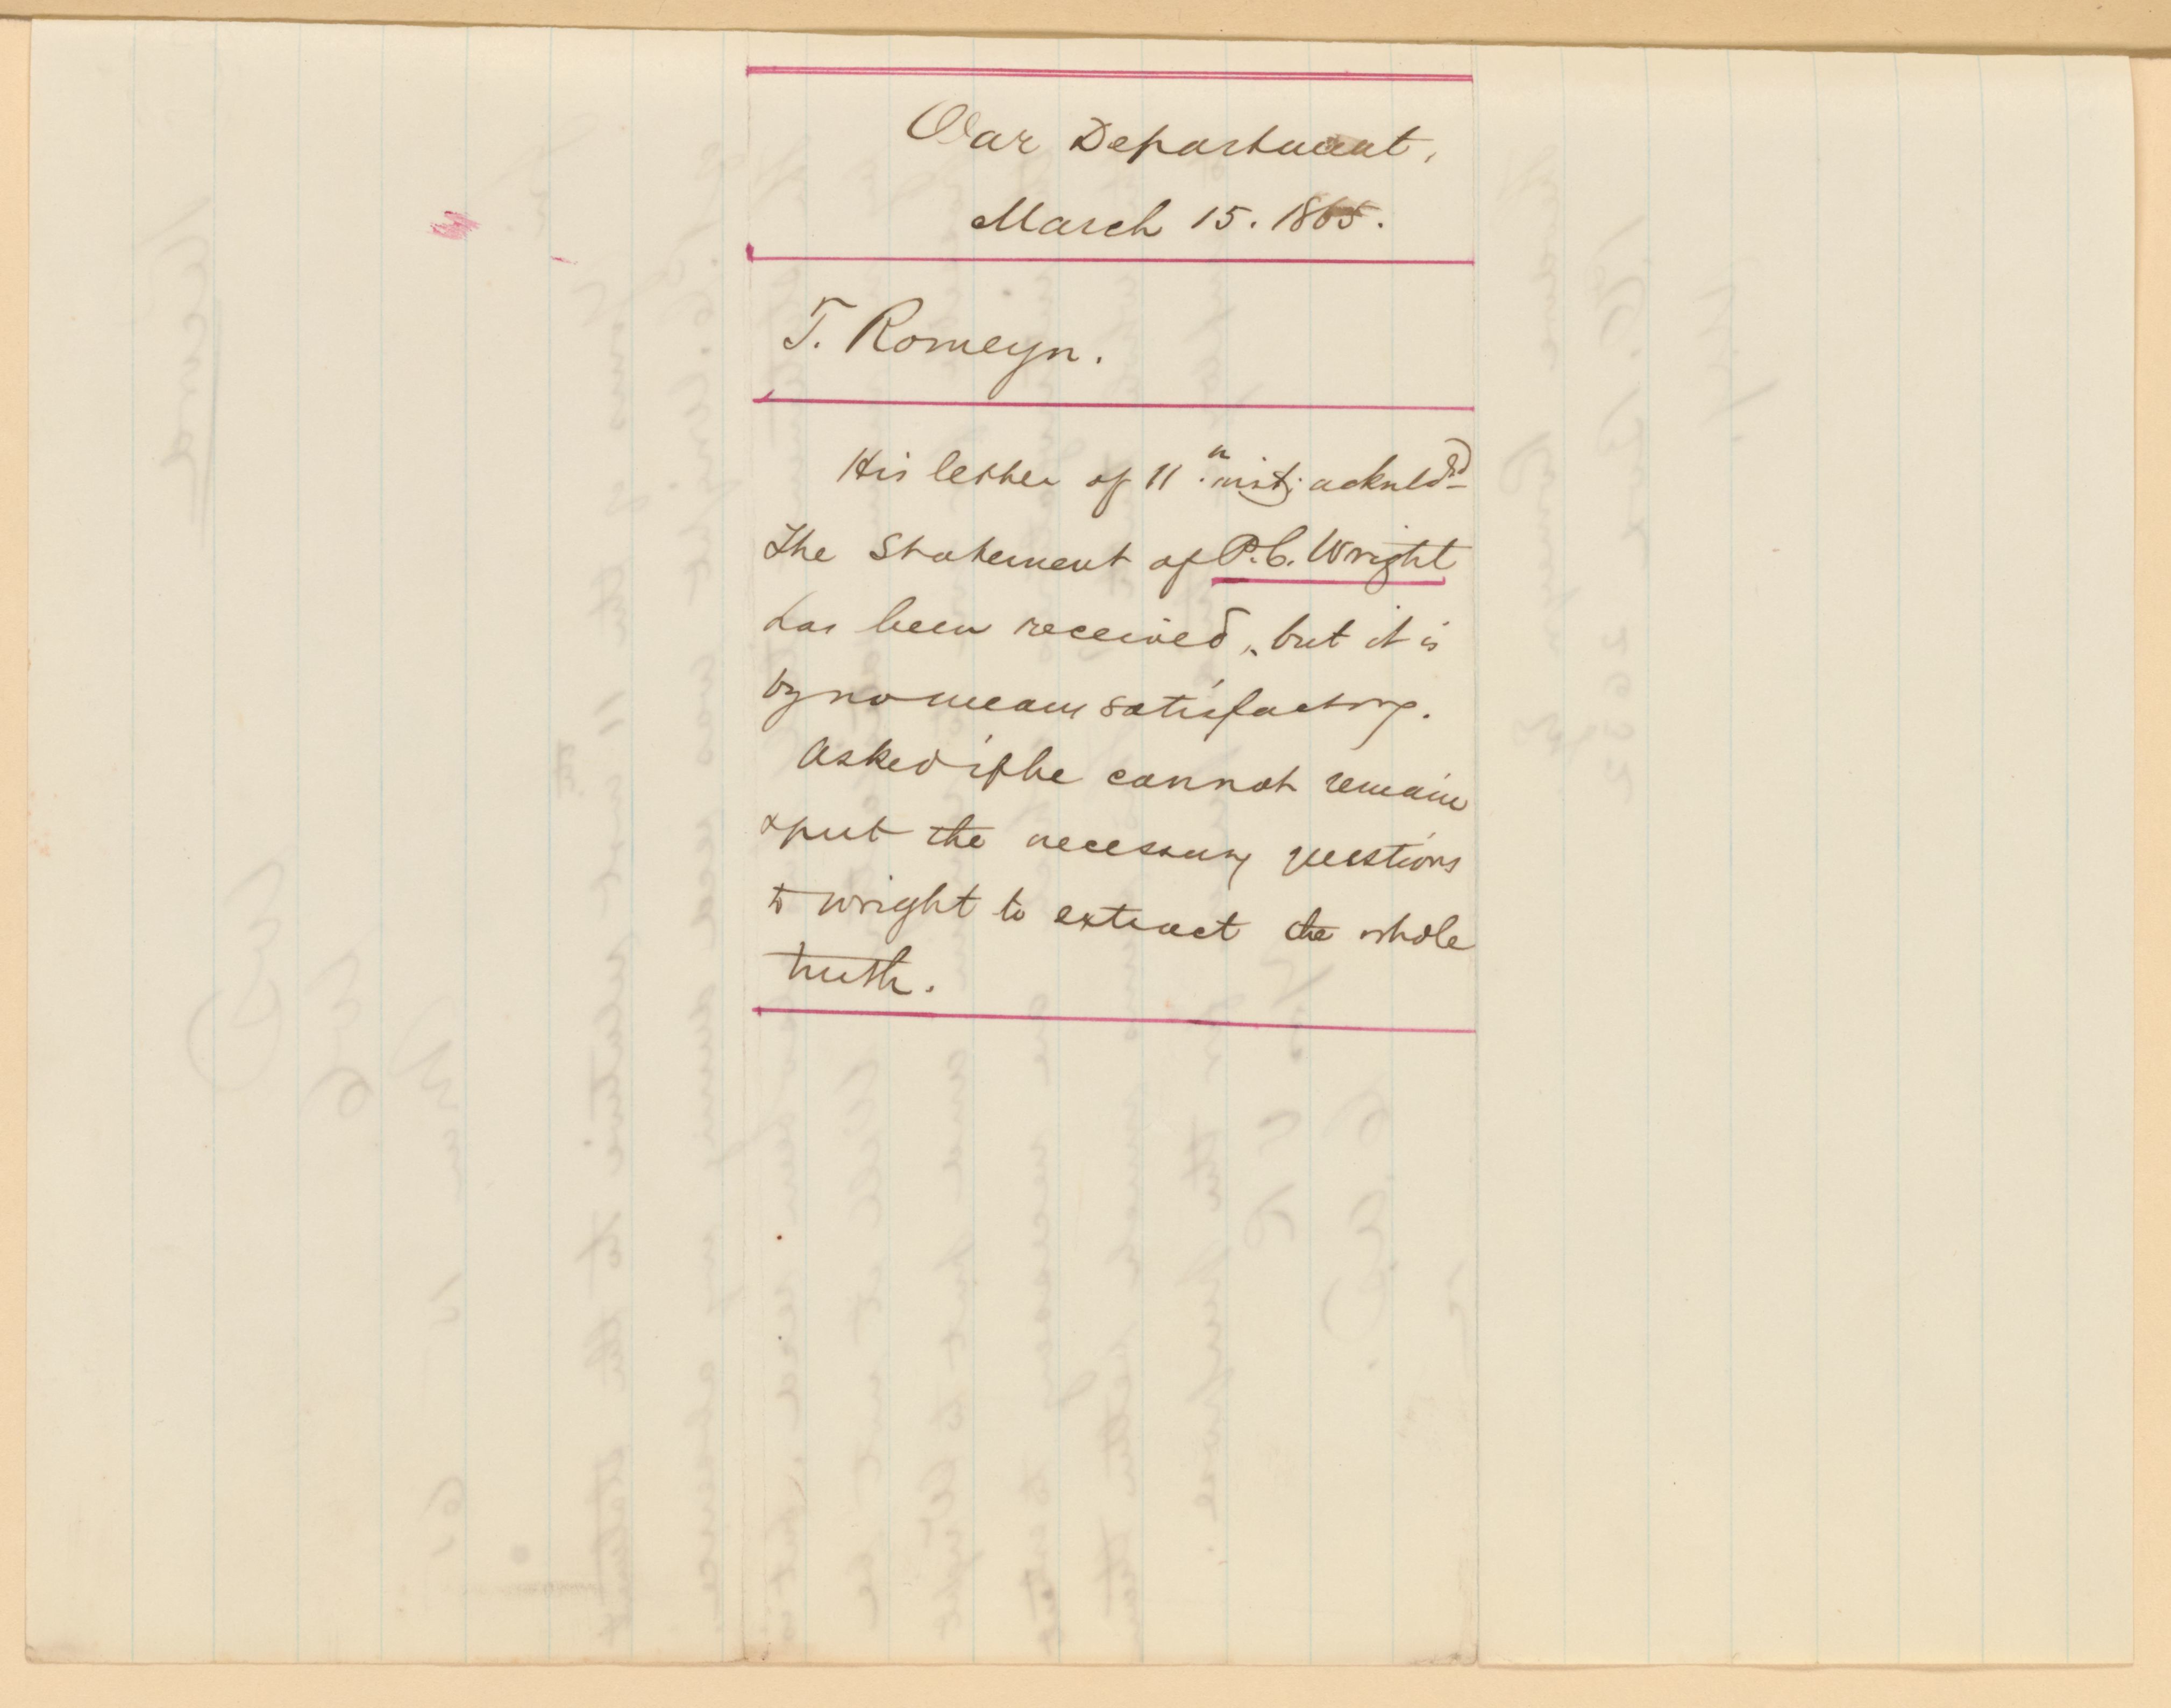 War Department,
March 15. 1865.
T. Romeyn.
His letter of 11th inst; acknld'd
The Statement of P.C. Wright
has been received, but it is
by no means satisfactory.
Asked if he cannot remain
& put the necessary questions
to Wright to extract the whole
truth.